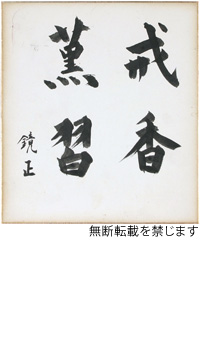 戒香
薫習
鏡正
無断転載を禁じます